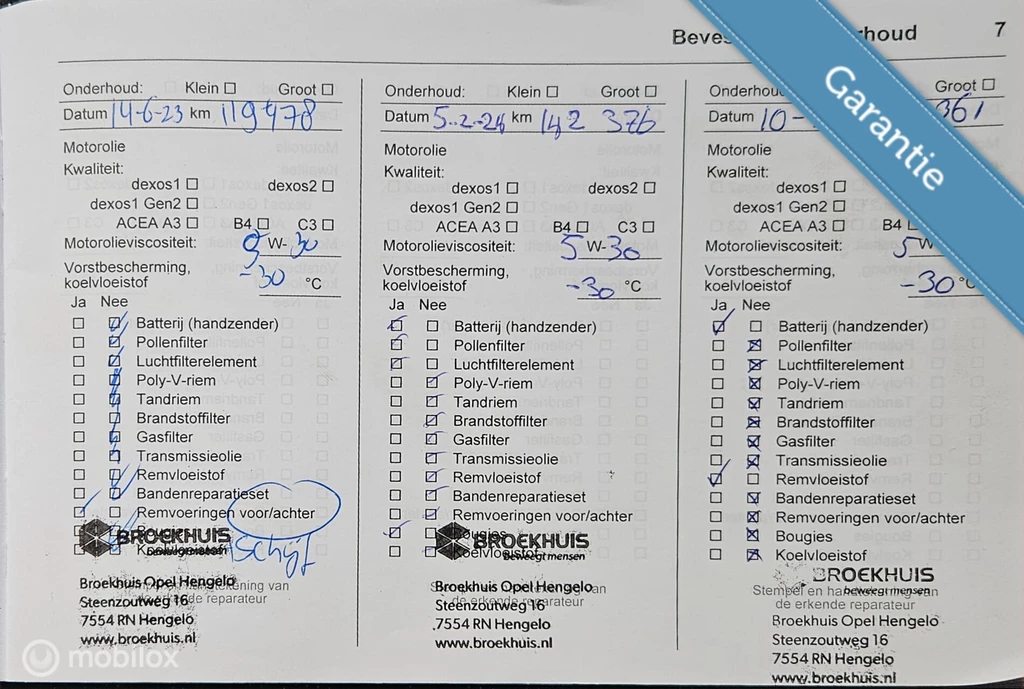 7
Garantie
Onderhoud: Klein Groot
Datum 14-6-23 km 119478
Motorolie
Kwaliteit:
dexos1 dexos2
dexos1 Gen2
ACEA A3 B4 C3
Motorolieviscositeit: W-30
Vorstbescherming,
koelvloeistof -30 °C
Ja Nee
Batterij (handzender)
Pollenfilter
Luchtfilterelement
Poly-V-riem
Tandriem
Brandstoffilter
Gasfilter
Transmissieolie
Remvloeistof
Bandenreparatieset
Remvoeringen voor/achter
schijf
BROEKHUIS
Broekhuis Opel Hengelo
de erkende reparateur
Steenzoutweg 16
7554 RN Hengelo
www.broekhuis.nl
Onderhoud: Klein Groot
Datum 5-2-24 km 142 376
Motorolie
Kwaliteit:
dexos1 dexos2
dexos1 Gen2
ACEA A3 B4 C3
Motorolieviscositeit: 5 W-30
Vorstbescherming,
koelvloeistof -30 °C
Ja Nee
Batterij (handzender)
Pollenfilter
Luchtfilterelement
Poly-V-riem
Tandriem
Brandstoffilter
Gasfilter
Transmissieolie
Remvloeistof
Bandenreparatieset
Remvoeringen voor/achter
Bougies
Koelvloeistof
BROEKHUIS
Beweegt mensen
Broekhuis Opel Hengelo
de erkende reparateur
Steenzoutweg 16
7554 RN Hengelo
www.broekhuis.nl
Onderhoud: Groot
Datum 10- 361
Motorolie
Kwaliteit:
dexos1
dexos1 Gen2
ACEA A3 B4
Motorolieviscositeit: 5 W
Vorstbescherming,
koelvloeistof -30 °C
Ja Nee
Batterij (handzender)
Pollenfilter
Luchtfilterelement
Poly-V-riem
Tandriem
Brandstoffilter
Gasfilter
Transmissieolie
Remvloeistof
Bandenreparatieset
Remvoeringen voor/achter
Bougies
Koelvloeistof
BROEKHUIS
beweegt mensen
Stempel en
de erkende reparateur
Broekhuis Opel Hengelo
Steenzoutweg 16
7554 RN Hengelo
www.broekhuis.nl
mobilox